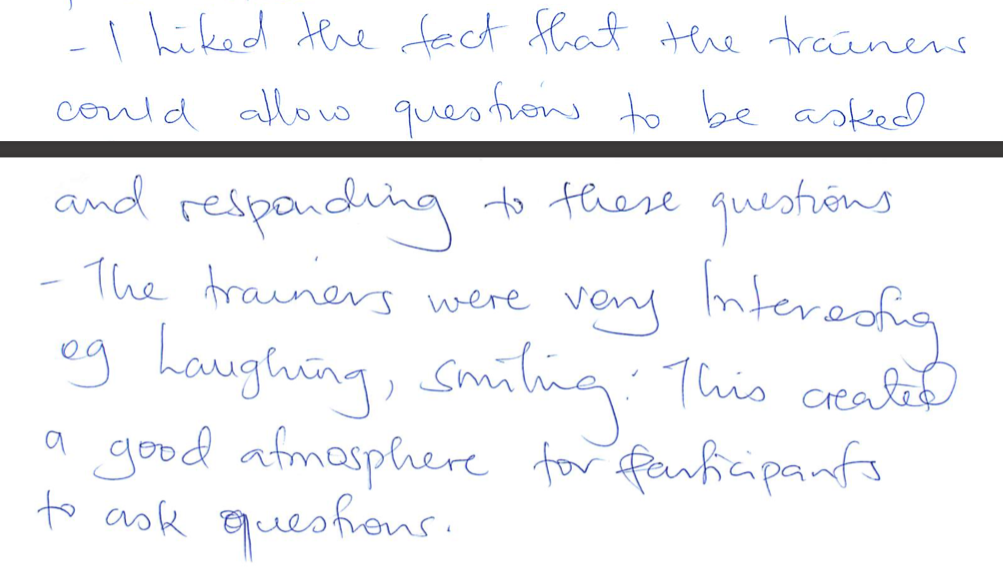 - I liked the fact that the trainers
could allow questions to be asked
and responding to these questions
- The trainers were very Interesting
eg Laughing, smiling. This created
a good atmosphere for participants
to ask questions.